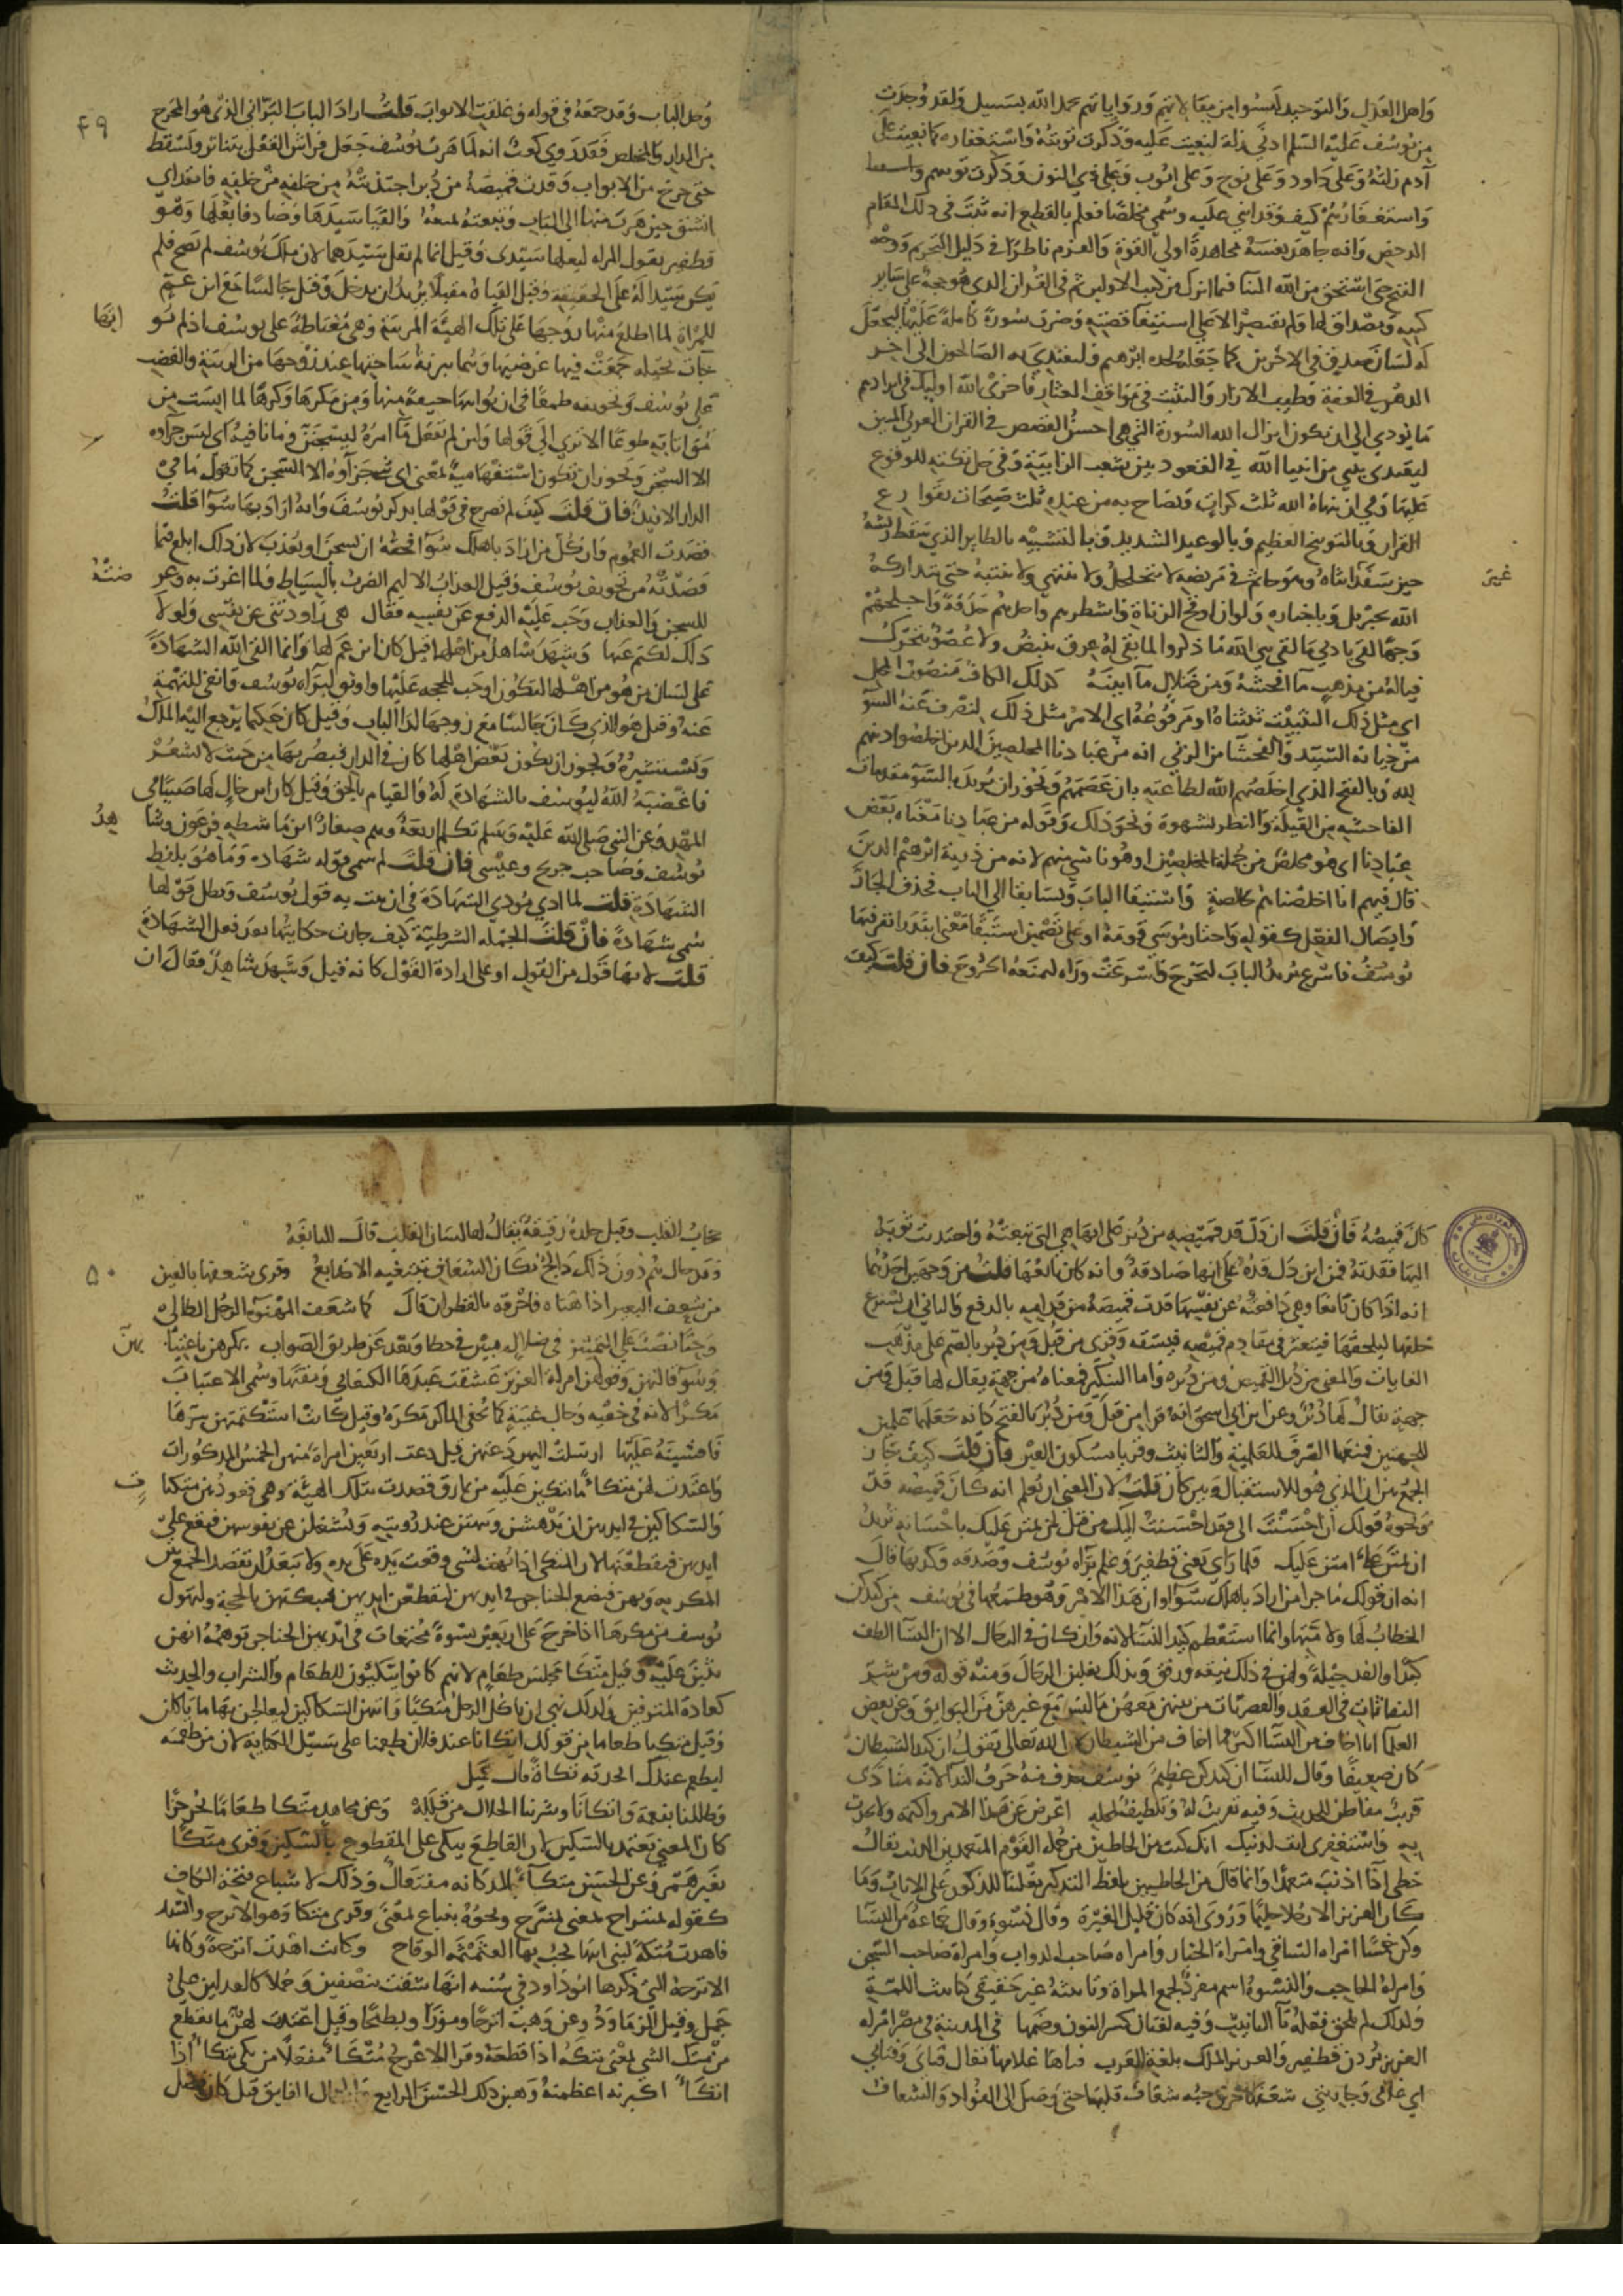 وَاهل العَدْلِ وَالتوحيد لَيسُوا من مقالاتهم ورواياتهم بحمد الله بسبيل ولقد وُجدت
من يوسف عليه السلم ادنى زلة لنعيت عليه وذكرت توبته واستغفاره كما نعيت على
آدم زلته وعلى داود وعلى نوح وعلى ايوب وعلى ذي النون وذكرت توبتهم
واستغفارُهُم كيف وقد اثني عليه وسُمي مخلصًا فعلم بالقطع انه ثبت في ذلك المقام
الدحض وانه جاهد نفسه مجاهدة اولي القوة والعزم ناظرًا في دليل التحريم ووجه
القبح حتى استحق من الله الثنا فيما انزل من كتب الاولين ثم في القران الذي هو حجة على ساير
كتبه ومصداق لها ولم يقتصر الا على استيفا قصته وضرب سورة كاملة عليها ليجعل
له لسان صدق في الاخرين كما جعله لجده ابرهيم وليقتدي به الصالحون الى اخر
الدهر في العفة وطيب الازار والتثبت في مواقف العثار فاخزى الله اوليك في ايرادهم
ما يودي الى ان يكون انزال الله السورة التي هي احسن القصص في القران العربي المبين
ليقتدى بنبي من انبيا الله في القعود بين شعب الزانية وفي حل تكته للوقوع
عليها وفي ان ينهاه الله ثلث كرات ويصاح به من عنده ثلث صيحات بقوارع
القران وبالتوبيخ العظيم وبالوعيد الشديد وبالتشبيه بالطاير الذي سقط ريشه
حين سفد انثاه وهو جاثم في مربضه لا يتحلحل ولا ينتهي ولا ينتبه حتى يتداركه
غير
الله بجبريل وباجباره ولو ان اوقح الزناة واشطرهم واحدهم حدقة واجلحهم
وجهًا لقي بادنى ما لقي نبي الله ما ذكروا لما بقي له عرق ينبض ولا عضو يتحرك
فياله من مذهب ما افحشه ومن ضلال ما ابينه كذلك الكاف منصوب المحل
اي مثل ذلك التثبيت ثبتناه او مرفوعه اي الامر مثل ذلك لنصرف عنه السو
من خيانه السيد والفحشا من الزنى انه من عبادنا المخلصين الذين اخلصوا دينهم
لله وبالفتح الذي اخلصهم الله لطاعته بان عصمهم ويجوز ان يريد بالسو مقدمات
الفاحشه من القبلة والنظر بشهوة ونحو ذلك وقوله من عبادنا معناه بعض
عبادنا اى هو مخلص من جملة المخلصين او هو ناشي منهم لانه من ذرية ابرهيم الذين
قال فيهم انا اخلصناهم بخالصة واستبقا الباب وتسابقا الى الباب فحذف الجار
وايصال الفعل كقوله واختار موسى قومه او على تضمين استبقا معنى ابتدرا نفر منها
يوسف فاسرع يريد الباب ليخرج واسرعت وراه لتمنعه الخروج فان قلت كيف
وُحد الباب وقد جمعه في قوله وغلقت الابواب قلت اراد الباب البراني الذي هو المخرج
٤٩
من الدار والمخلص فقد روي كعب انه لما هرب يوسف جعل فراش القفل يتناثر ويسقط
حتى خرج من الابواب وقدت قميصه من دبر اجتذبته من خلفه من خلفه فانقد اي
انشق حين هرب منها الى الباب وتبعته لمنعه والفيا سيدها وصادفا بعلها وهو
قطفير يقول المراه لبعلها سيدى وقيل انما لم يقل سيدهما لان ملك يوسف لم يصح فلم
يكن سيدا له على الحقيقة وقيل الفياه مقبلا يريد ان يدخل وقيل جالسا مع ابن عم
للمراة لما اطلع منها زوجها على تلك الهيئة المريبة وهي مغتاظة على يوسف اذ لم يو
اتها
جات بحيله جمعت فيها غرضيها وهما تبرئة ساحتها عند زوجها من الريبة والغضب
على يوسف وتخويفه طمعًا في ان يواتيها خيفة منها ومن مكرها وكرها لما ايست من
مواتاته طوعا الا ترى الى قولها ولئن لم يفعل ما امره ليسجنن وما نافية اى ليس جزاوه
الا السجن ويجوز ان تكون استفهامية بمعنى اى شي جزاوه الا السجن كما تقول من في
الدار الا زيد فان قلت كيف لم تصرح في قولها بذكر يوسف وانه اراد بها سوا قلت
قصدت العموم وان كل من اراد باهلك سوا فحقه ان يسجن او يعذب لان ذلك ابلغ فيما
قصدته من تخويف يوسف وقيل العذاب الاليم الضرب بالسياط ولما اغرت به وعر
ضته
للسجن والعذاب وجب عليه الدفع عن نفسه فقال هي راودتني عن نفسي ولولا
ذلك لكتم عنها وشهد شاهد من اهلها قيل كان ابن عم لها وانما القى الله الشهادة
على لسان من هو من اهلها لتكون اوجب للحجة عليها واوثق لبراة يوسف وانفى للتهمة
عنه وقيل هو الذي كان جالسا مع زوجها لدا الباب وقيل كان حكيما يرجع اليه الملك
ويستشيره ويجوز ان يكون بعض اهلها كان في الدار فبصر بها من حيث لا تشعر
فاغضبه الله ليوسف بالشهادة له والقيام بالحق وقيل كان ابن خال لها صبيا في
المهد وعن النبي صلى الله عليه وسلم تكلم اربعة وهم صغار ابن ماشطه فرعون وشا
هد
يوسف وصاحب جريج وعيسى فان قلت لم سمى قوله شهادة وما هو بلفظ
الشهادة قلت لما ادى مودي الشهادة في ان ثبت به قول يوسف وبطل قولها
سمي شهادة فان قلت الجمله الشرطية كيف جازت حكايتها بعد فعل الشهادة
قلت لانها قول من القول او على ارادة القول كانه قيل وشهد شاهد فقال ان
كان قميصه فان قلت ان دل قد قميصه من دبر على انها هي التي تبعته واجتذبت ثوبه
اليها فقدته فمن اين دل قده على انها صادقة وانه كان تابعها قلت من وجهين احدهما
انه اذا كان تابعا وهي دافعته عن نفسها قدت قميصه من قدامه بالدفع والثاني ان يسرع
خلفها ليلحقها فيتعثر في مقادم قميصه فيشقه وقرى من قبل ومن دبر بالضم على مذهب
الغايات والمعنى من قبل القميص ومن دبره واما التنكير فمعناه من جهة يقال لها قبل ومن
جهة يقال لها دبر وعن ابن ابي اسحق انه قرا من قبل ومن دبر بالفتح كانه جعلهما علمين
للجهتين فمنعهما الصرف للعلمية والتانيث وقريا بسكون العين فان قلت كيف جاز
الجمع بين ان الذي هو للاستقبال وبين كان قلت لان المعنى ان يعلم انه كان قميصه قد
ونحوه قولك ان احسنت الى فقد احسنت اليك من قبل لمن يمتن عليك باحسانه تريد
ان تمتن علي امتن عليك فلما راى يعني قطفير وعلم براه يوسف وصدقه وكذبها قال
انه ان قولك ما جزا من اراد باهلك سوا او ان هذا الامر وهو طمعها في يوسف من كيدكن
الخطاب لها ولامتها وانما استعظم كيد النسا لانه وان كان في الرجال الا ان النسا الطف
كيدا وانفذ حيلة ولهن في ذلك نيقه ورفق وبذلك يغلبن الرجال ومنه قوله ومن شر
النفاثات في العقد والقصريات من بينهن معهن ما ليس مع غيرهن من البوايق وعن بعض
العلما انا اخاف من النسا اكثر مما اخاف من الشيطان لان الله تعالى يقول ان كيد الشيطان
كان ضعيفا وقال للنسا ان كيدكن عظيم يوسف حذف منه حرف الندا لانه منادى
قريب مفاطن للحديث وفيه تقريب له وتلطيف لمحله اعرض عن هذا الامر واكتمه ولا تحدث
به واستغفرى انت لذنبك انك كنت من الخاطيين من جمله القوم المتعمدين للذنب يقال
خطئ اذا اذنب متعمدا وانما قال من الخاطيين بلفظ التذكير تغليبا للذكور على الاناث وما
كان العزيز الا رجلا حليما وروى انه كان قليل الغيرة وقال نسوه وقال جماعة من النسا
وكن خمسا امراه الساقي وامراة الخباز وامراه صاحب الدواب وامراة صاحب السجن
وامراة الحاجب والنسوة اسم مفرد لجمع المراة وتانيثه غير حقيقي كتانيث اللمة
ولذلك لم تلحق فعله تا التانيث وفيه لغتان كسر النون وضمها في المدينة في مصر امراه
العزيز يردن قطفير والعزيز الملك بلغة العرب فتاها غلامها يقال فتاى وفتاتي
اي غلامي وجاريتي شغفها خرق حبه شغاف قلبها حتى وصل الى الفواد والشغاف
حجاب القلب وقيل جلدة رقيقة يقال لها لسان القلب قال النابغة
وقد حال هم دون ذلك والج مكان الشغاف تبتغيه الاصابع وقرى شعفها بالعين
٥٠
من شعف البعير اذا هناه فاحرقه بالقطران قال كما شعف المهنوة الرجل الطالي
وحبا نصب على التمييز في ضلال مبين في خطا وبعد عن طريق الصواب بمكرهن باغتيا
بهن
وسو قالتهن وقولهن امراة العزيز عشقت عبدها الكنعاني ومقتها وسمي الاغتياب
مكرًا لانه في خفيه وحال غيبة كما يخفي الماكر مكره وقيل كانت استكتمتهن سرها
فافشينه عليها ارسلت اليهن دعتهن قيل دعت اربعين امراة منهن الخمس المذكورات
واعتدت لهن متكأ ما يتكين عليه من نمارق قصدت بتلك الهيئة وهي قعودهن متكيا
ت
والسكاكين في ايديهن ان يدهشن ويبهتن عند رويته ويشغلن عن نفوسهن فتقع على
ايديهن فيقطعنها لان المتكي اذا بهت لشي وقعت يده على يده ولا يبعد ان تقصد الجمع بين
المكر به وبهن فتضع الخناجر في ايديهن ليقطعن ايديهن فتبكتهن بالحجة ولتهول
يوسف من مكرها اذا خرج على اربعين نسوة مجتمعات في ايديهن الخناجر توهمه انهن
يثبن عليه وقيل متكا مجلس طعام لانهم كانوا يتكيون للطعام والشراب والحديث
كعادة المترفين ولذلك نهي ان ياكل الرجل متكيا واتتهن السكاكين ليعالجن بها ما ياكلن
وقيل متكيا طعاما من قولك اتكانا عند فلان طعمنا على سبيل الكناية لان من دعوته
ليطعم عندك اتخذت له تكاة قال جميل
فظللنا بنعمة واتكانا وشربنا الحلال من قلله وعن مجاهد متكا طعاما يحز حزا
كان المعنى يعتمد بالسكين لان القاطع يتكى على المقطوع بالسكين وقرى متكا
بغير همز وعن الحسن متكآء بالمد كانه مفتعال وذلك لاشباع فتحه الكاف
كقوله بمنتزاح بمعنى بمنتزح ونحوه ينباع بمعنى وقرى متكا وهو الاترج وانشد
فاهدت متكة لبني ابيها تخب بها العثمثمة الوقاح وكانت اهدت اترجة وكانها
الاترجة التي ذكرها ابو داود في سننه انها شقت بنصفين وحملا كالعدلين على
جمل وقيل الزماورد وعن وهب اترجا وموزا وبطيخا وقيل اعتدت لهن ما يقطع
من متك الشي بمعنى بتكه اذا قطعه وقرا الاعرج متكأ مفعلا من تكى يتكأ اذا
اتكأ اكبرنه اعظمنه وهبن ذلك الحسن الرايع والجمال الفايق قيل كان فضل